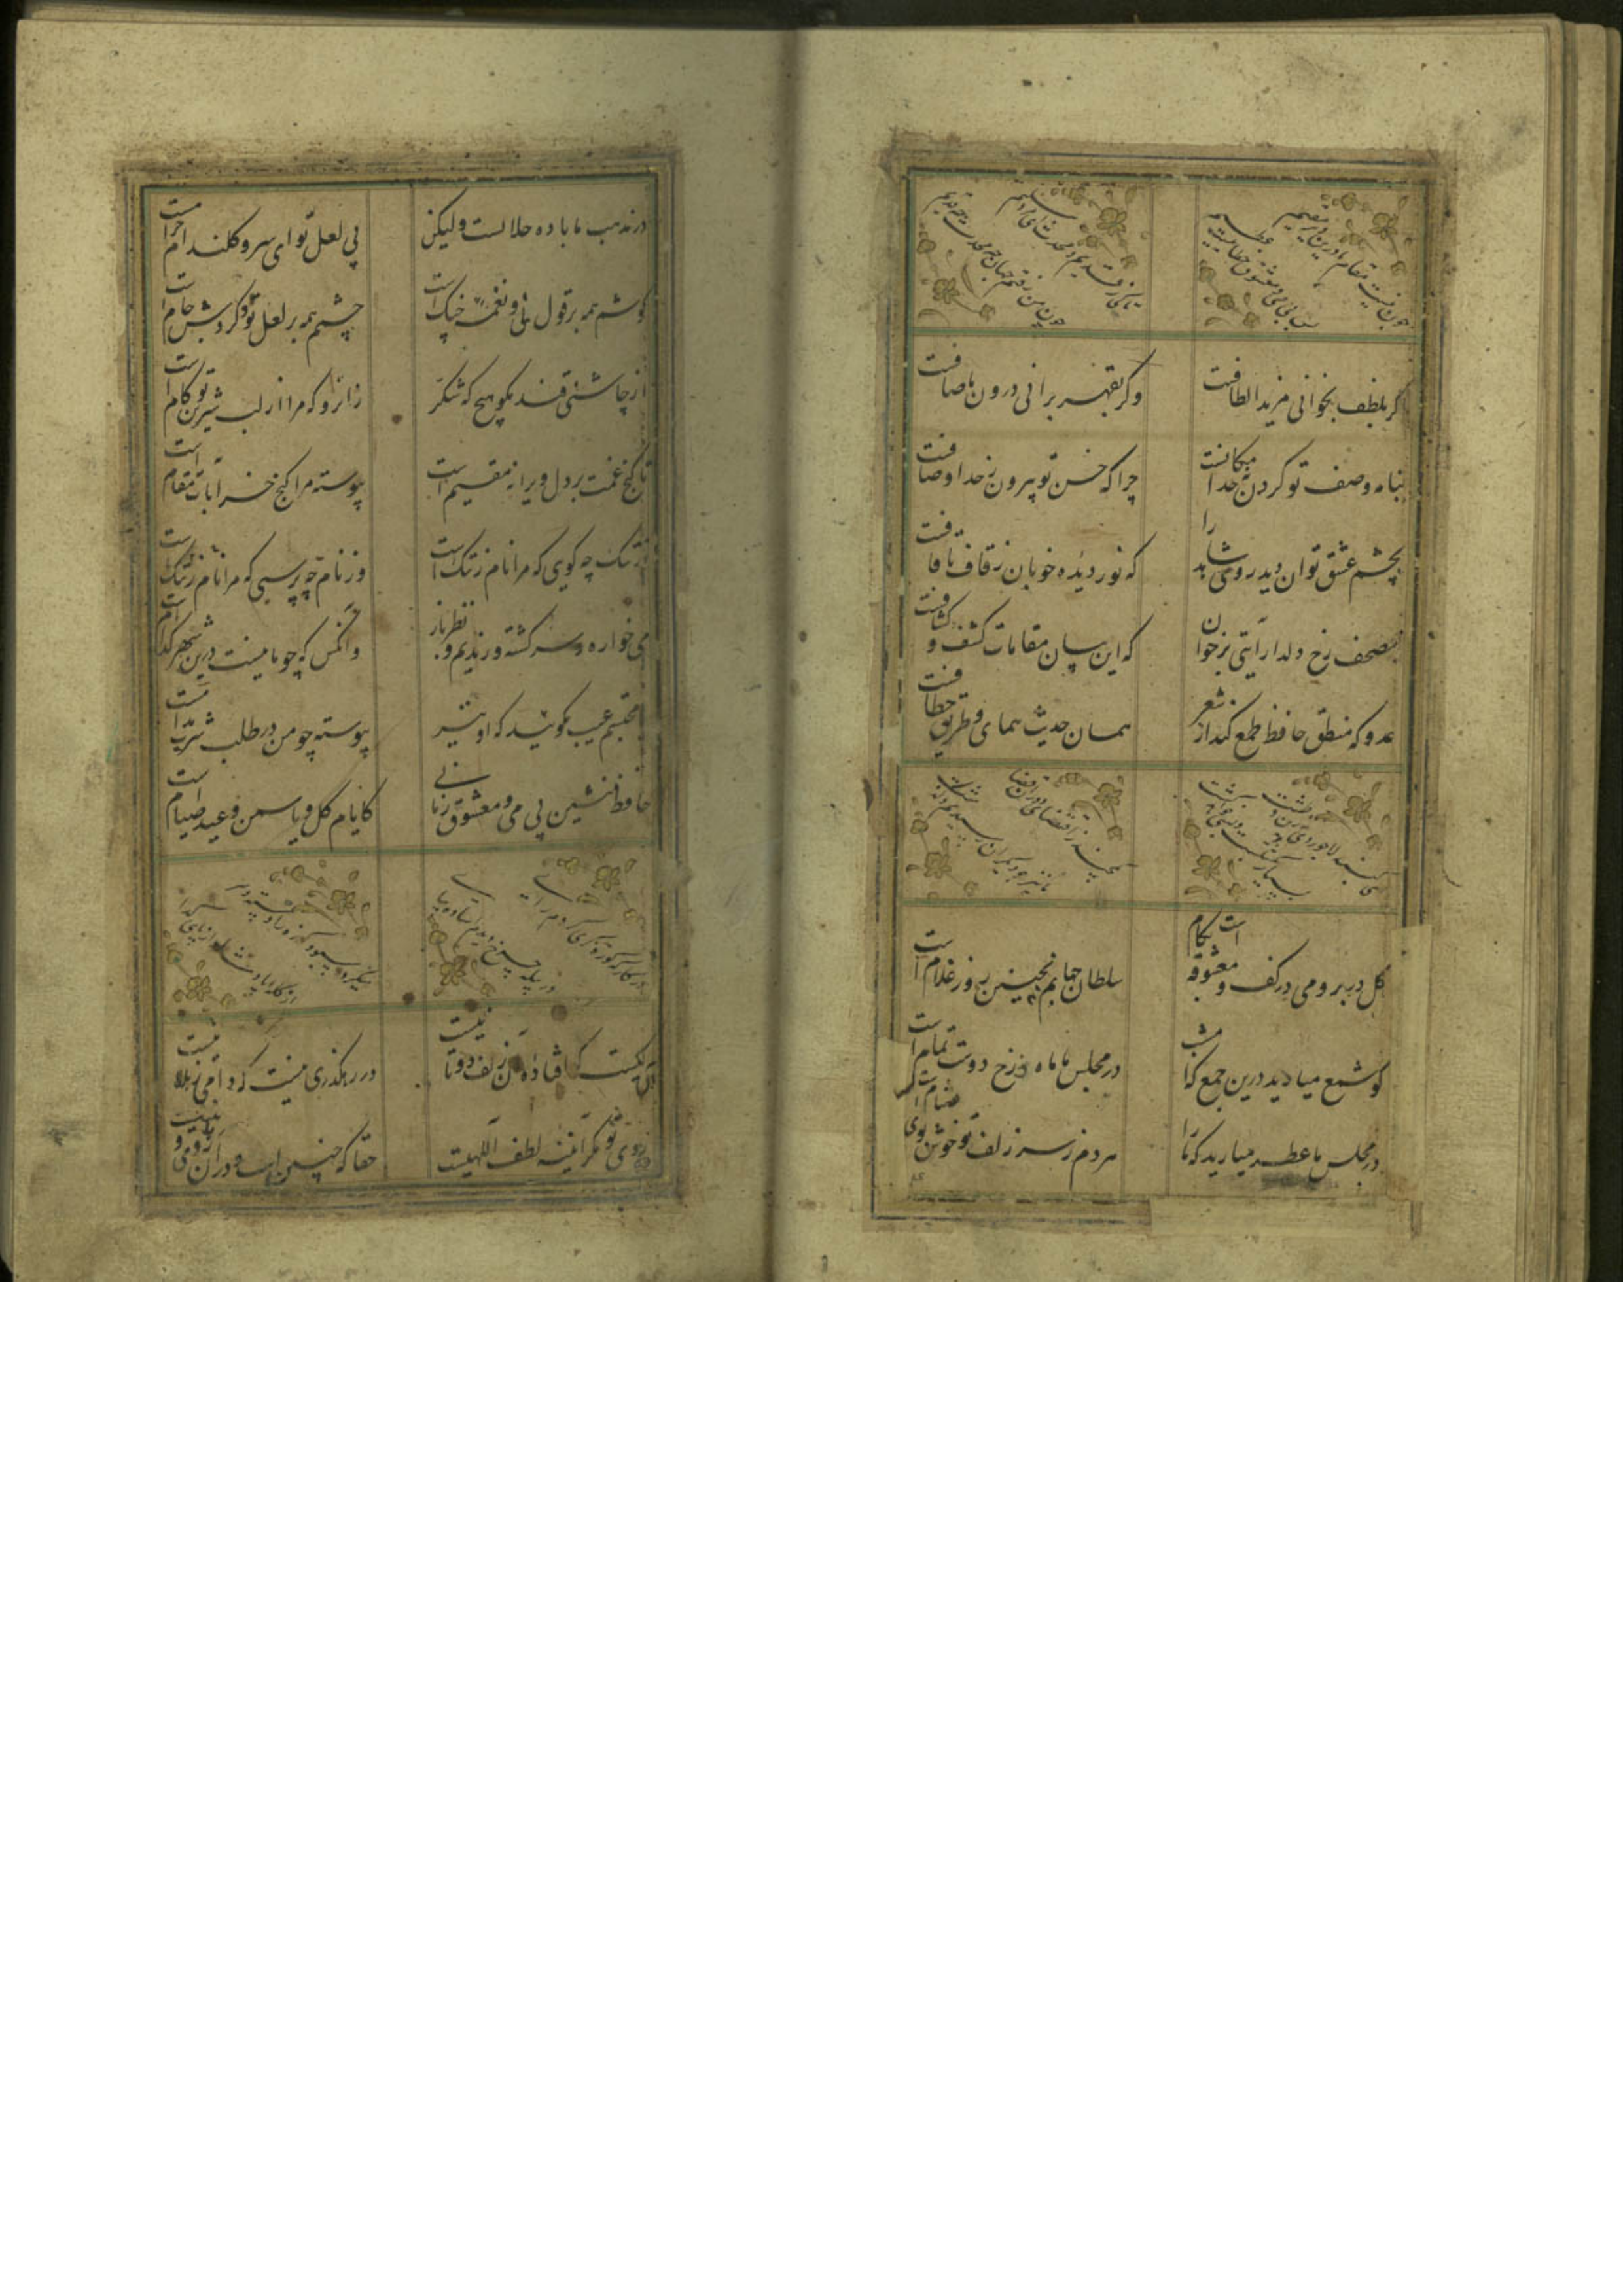 چون نیست مقام ما درین دیر مقیم
پس بی می و معشوق خطاییست عظیم
تا کی ز قدیم و محدث ای مرد سلیم
چون من رفتم جهان چه محدث چه قدیم
گر بلطف بخوانی مزید الطافست
وگر بقهر برانی درون ما صافست
بنامه وصف تو کردن نه حد امکانست
چرا که حسن تو بیرون ز حد اوصافست
بچشم عشق توان دید روی شاهد را
که نور دیده خوبان ز قاف تا قافست
ز مصحف رخ دلدار آیتی برخوان
که این بیان مقامات کشف و کشافست
عدو که منطق حافظ طمع کند از شعر
همان حدیث همای و طریق خطافست
گل در بر و می در کف و معشوقه بکام است
سلطان جهانم بچنین روز غلام است
گو شمع میارید درین جمع که امشب
در مجلس ما ماه رخ دوست تمام است
در مجلس ما عطر میارید که ما را
هر دم ز سر زلف تو خوش بوی مشام است
در مذهب ما باده حلالست ولیکن
بی لعل تو ای سرو گلندام حرام است
گوشم همه بر قول نی و نغمه چنگ است
چشمم همه بر لعل تو و گردش جام است
از چاشنی قند مگو هیچ که شکر
زانرو که مرا از لب شیرین تو کام است
تا گنج غمت بر دل ویرانه مقیم است
پیوسته مرا کنج خرابات مقام است
از ننگ چه گویی که مرا نام ز ننگ است
وز نام چه پرسی که مرا نام ز ننگ است
می خواره و سر گشته و رندیم و نظرباز
وانکس که چو ما نیست درین شهر کدام است
با محتسبم عیب مگویید که او نیز
پیوسته چو من در طلب شرب مدام است
حافظ منشین بی می و معشوق زمانی
کایام گل و یاسمن و عید صیام است
در کارگه کوزه گری کردم رای
در پایه چرخ دیدم استاد بپای
میکرد سبو و کوزه را دسته و سر
از کله پادشاه و از پای گدای
کس نیست که افتاده آن زلف دوتا نیست
در رهگذری نیست که دامی ز بلا نیست
روی تو مگر آینه لطف الهیست
حقا که چنین است و در آن روی و ریا نیست